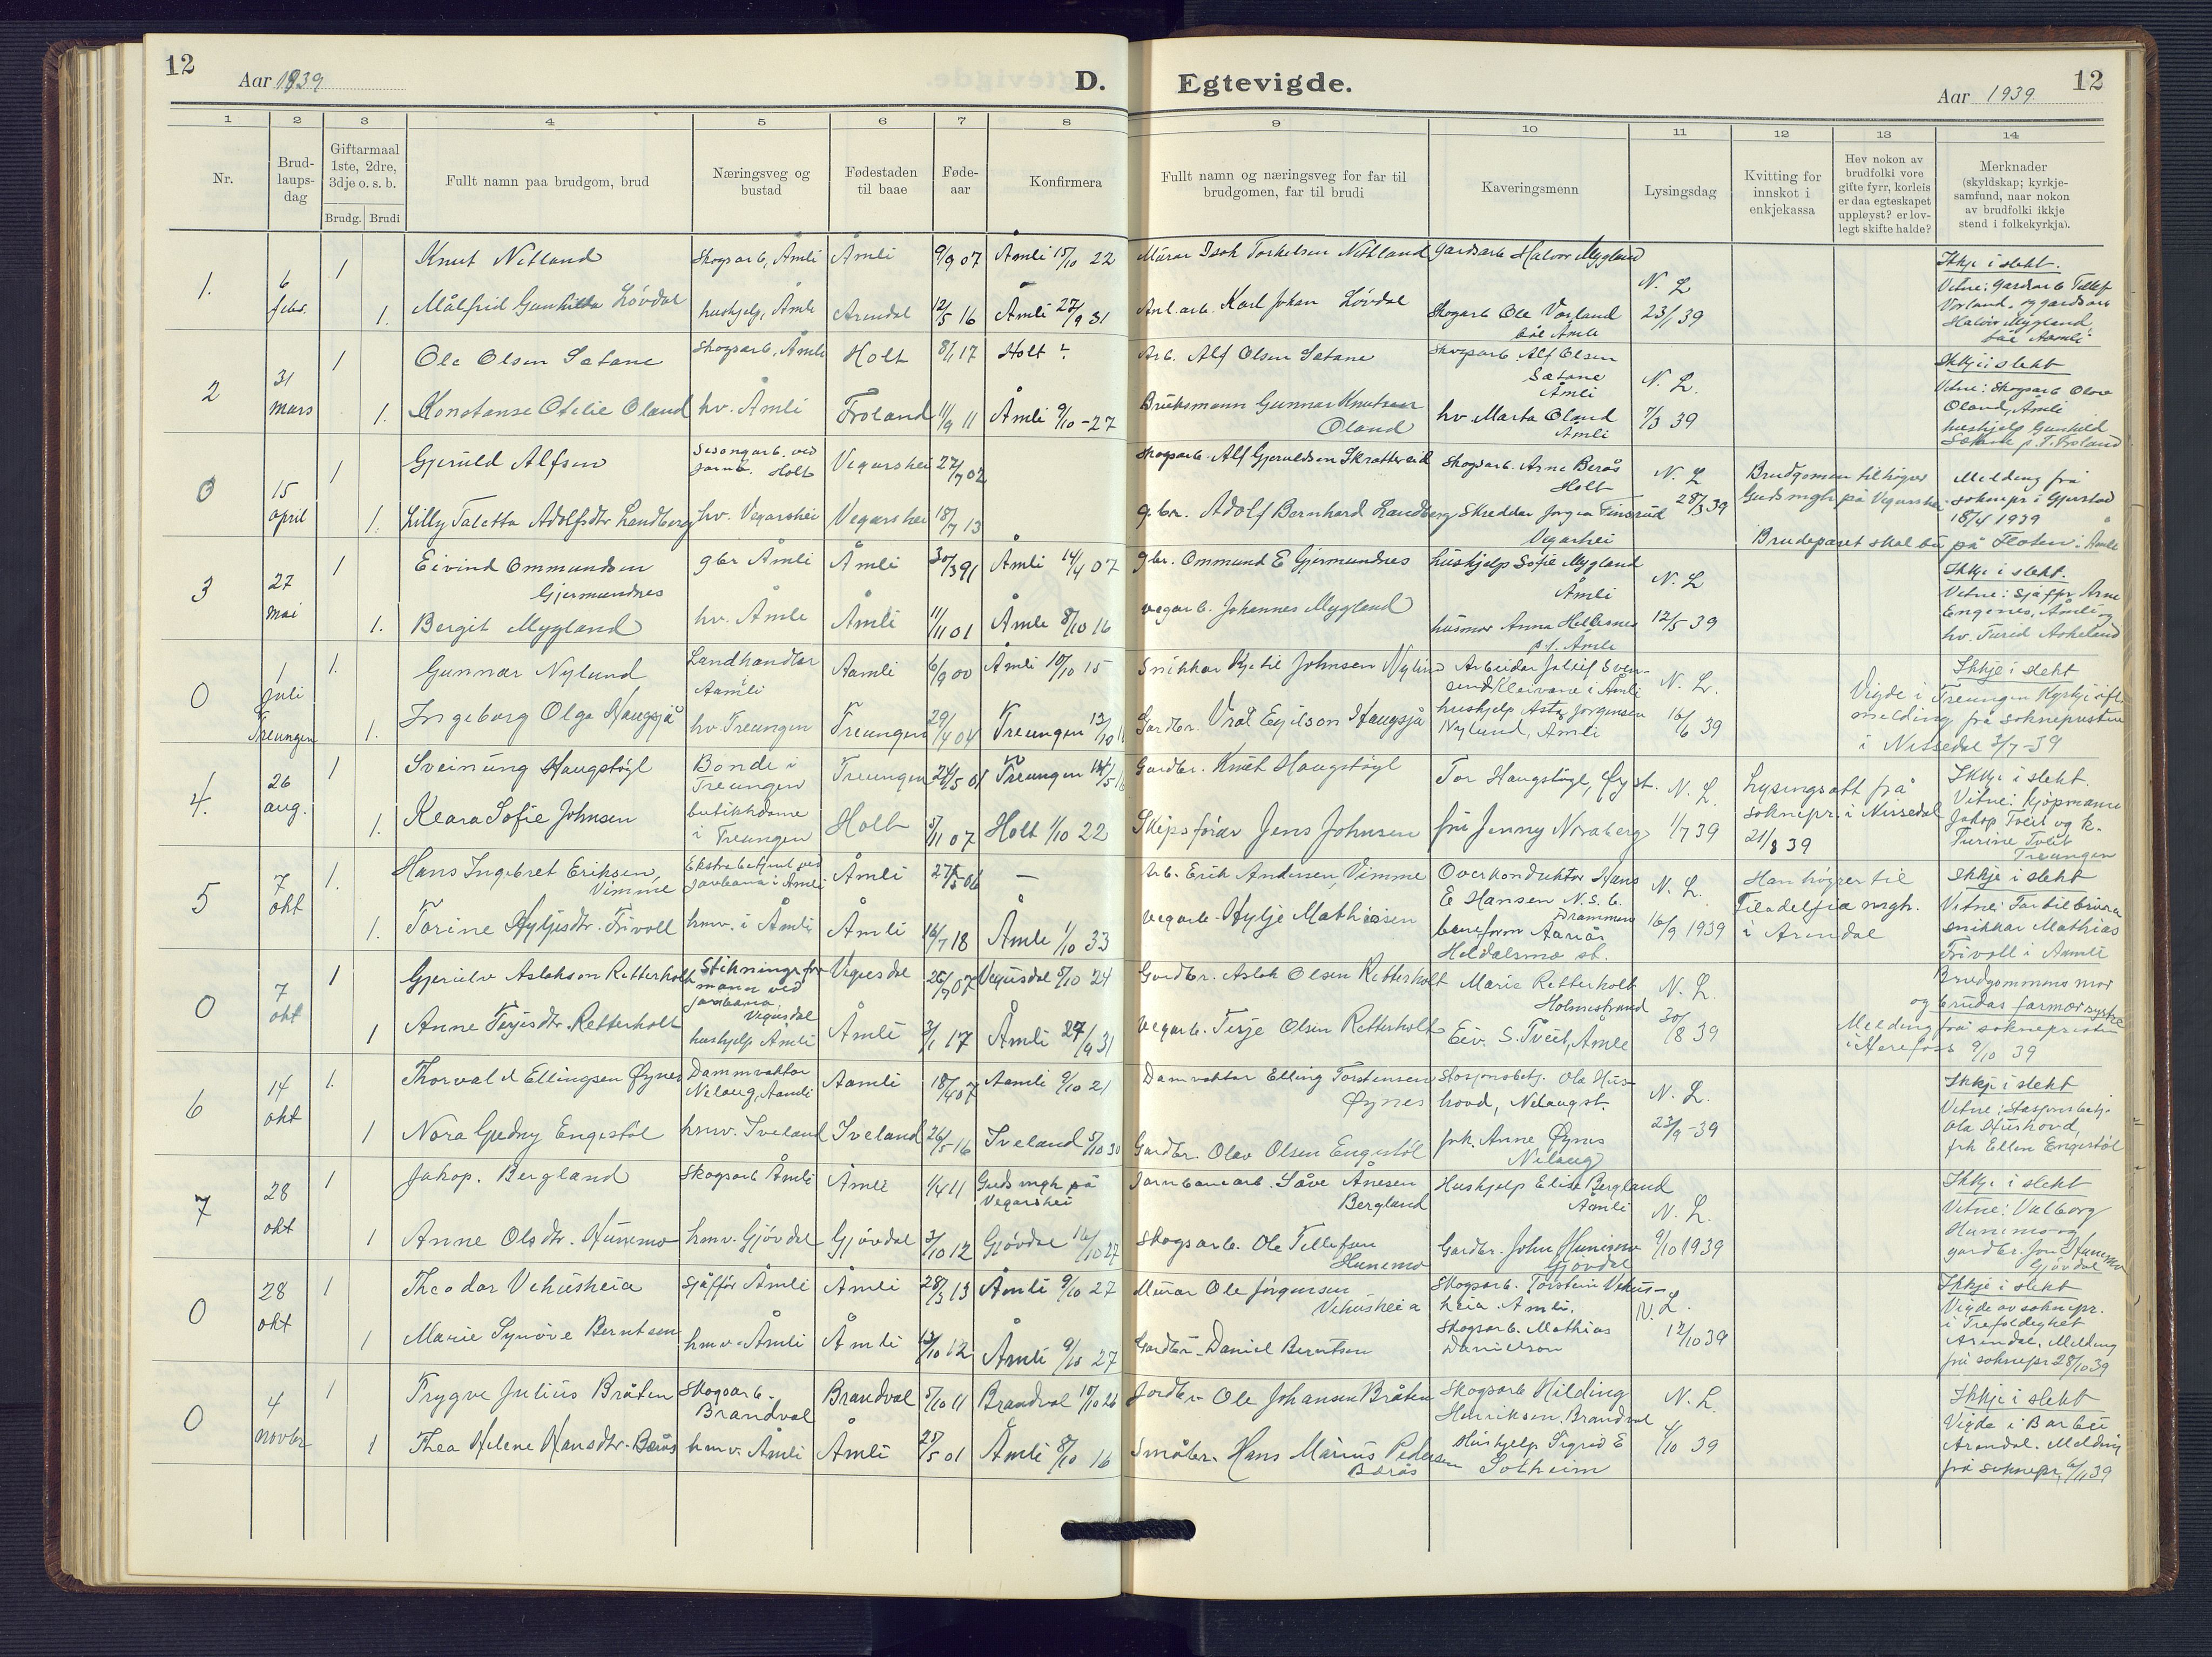 12
Aar 1939
D.
Egtevigde.
Aar 1939
12
1 2 3 4 5 6 7 8 9 10 11 12 13 14
Nr.
Brud-
laups-
dag
Giftarmaal
1ste, 2dre,
3dje o. s. b.
Brudg. Brudi
Fullt namn paa brudgom, brud
Næringsveg og
bustad
Fødestaden
til baae
Føde-
aar
Konfirmera
Fullt namn og næringsveg for far til
brudgomen, far til brudi
Kaveringsmenn
Lysingsdag
Kvitting for
innskot i
enkjekassa
Hev nokon av
brudfolki vore
gifte fyrr, korleis
er daa egteskapet
uppløyst? er lov-
legt skifte halde?
Merknader
(skyldskap; kyrkje-
samfund, naar nokon
av brudfolki ikkje
stend i folkekyrkja).
1. 6 febr.
1 Knut Nilland Skogsarb, Åmli Åmli 9/9 07 Åmli 15/10 22 Murar Isak Torkelsen Nilland Gardsarb Halvor Mygland
1. Målfrid Gunhilda Lövdal hushjelp, Åmli Arendal 12/5 16 Åmli 27/9 31 Anl.arb. Karl Johan Lövdal Skogarb Ole Vorland
båe Åmli
N. L
23/1 39
Ikkje i slekt.
Vitne: Gardsarb Tellef
Vorland, og gardsarb
Halvor Mygland
båe Åmli
2 31 mars
1 Ole Olsen Satane Skogsarb, Åmli Holt 8/1 17 Holt ? Arb. Alf Olsen Satane Skogsarb. Alf Olsen
Satane
Åmli
1. Konstanse Otelie Oland hv. Åmli Froland 11/9 11 Åmli 9/10-27 Bruksmann Gunnar Knutsen
Oland hv Marta Oland
Åmli
N. L.
7/3 39
Ikkje i slekt
Vitne: Skogsarb Olav
Oland, Åmli
hushjelp Gunhild
0 15 april
1 Gjeruld Alfsen Sesongarb. ved
jarnb. Holt Vegårshei 27/7 02 Skogsarb. Alf Gjeruldsen Skrattereid Skogsarb. Arne Berås
Holt
1. Lilly Taletta Adolfsdtr Landberg hv. Vegårshei Vegårshei 18/7 13 g.br. Adolf Bernhard Landberg Skreddar Jørgen Finsrud
Vegårshei
N. L
28/3 39
Brudgomen tilhöyrer
Guds mgh på Vegårshei
Melding frå
soknepr i Gjerstad
18/4 1939
Brudeparet skal bu på Floten i Åmli
3 27 mai
1 Eivind Ommundsen
Gjermundnes gbr Åmli Åmli 30/3 91 Åmli 14/4 07 gbr. Ommund E Gjermundnes hushjelp Sofie Mygland
Åmli
1. Bergit Mygland hv. Åmli Åmli 11/11 01 Åmli 8/10 16 vegarb. Johannes Mygland husmor Anna Hellesnes
p.t. Åmli
N. L
12/5 39
Ikkje i slekt.
Vitne: Sjåfør Arne
Engenes, Åmli og
hv. Turid Askeland
0 1 juli Treungen
1. Gunnar Nylund Landhandlar
Aamli Aamli 6/9 00 Åmli 10/10 15 Snikkar Kjetil Johnsen Nylund Arbeidar Jølleif Sven-
send Kleivane i Åmli
1. Ingeborg Olga Haugsjå hv Treungen Treungen 29/4 04 Treungen 12/10 Gardbr. Vråt Egilson Haugsjå hushjelp Asta Jørgensen
Nylund, Åmli
N. L.
16/6 39
Ikkje i slekt
Vigde i Treungen Kyrkje ifl
melding frå soknepresten
i Nissedal 3/7-39
4. 26 aug.
1 Sveinung Haugstøyl Bonde i
Treungen Treungen 24/5 01 Treungen Gardbr. Knut Haugstøyl Tor Haugstøyl, Øyst.
1. Klara Sofie Johnsen butikkdame
i Treungen Holt 5/11 07 Holt 1/10 22 Skipsförar Jens Johnsen fru Jenny Noraberg
N. L.
1/7 39
Lysingsatt frå
soknepr. i Nissedal
21/8 39
Ikkje i slekt.
Vitne: Kjøpmann
Jakop Tveit og k.
Turine Tveit
Treungen
5 7 okt
1. Hans Ingebret Eriksen,
Vimme Ekstrabetjent ved
jarnbana i Åmli Åmli 27/5 06 — Arb. Erik Andersen, Vimme Overkonduktør Hans
E Hansen N.S.B.
Drammen
1. Torine Hyljesdtr. Frivoll hmv. i Åmli Åmli 16/7 18 Åmli 1/10 33 Vegarb. Hylje Mathissen baneform Aarås
Heldalsmo st.
N. L.
16/9 1939
Han höyrer til
Filadelfia mgh.
i Arendal
Ikkje i slekt
snikkar Mathias
Frivoll i Aamli
0 7 okt
1 Gjerulv Aslakson Retterholt Stikningsfor
mann ved
jarnbana.
Vegusdal Vegusdal 26/7 07 Vegusdal 5/10 24 Gardbr. Aslak Olsen Retterholt Marie Retterholt
Holmestrand
1 Anne Terjesdtr. Retterholt hushjelp Åmli Åmli 3/1 17 Åmli 27/9 31 Vegarb. Terje Olsen Retterholt Eiv. S. Tveit, Åmli
N. L.
30/8 39
Brudgommens mor
og brudas farmor systre
Melding frå soknepresten
i Herefoss 9/10 39
6 14 okt
1. Thorvald Ellingsen Øynes Damvaktar
Nelaug, Aamli Aamli 18/4 07 Aamli 9/10 21 Damvaktar Elling Torstensen
Øynes Stasjonsbetj. Ola Hus-
hovd, Nelaug st.
1 Nora Gudny Engestöl hmv. Iveland Iveland 26/5 16 Iveland 5/10 30 Gardbr. Olav Olsen Engestöl frk. Anne Øynes
Nelaug
N. L.
23/9-39
Ikkje i slekt
Vitne: Stasjonsbetj.
Ola Hushovd,
frk Ellen Engestöl
7 28 okt
1 Jakop. Bergland Skogsarb Åmli Åmli 1/4 11 Guds mgh på
Vegårshei Jarnbanearb. Såve Ånesen
Bergland Hushjelp Elise Bergland
Åmli
1 Anne Olsdtr. Hunemo hmv. Gjövdal Gjövdal 3/10 12 Gjövdal 16/10 27 Skogsarb. Ole Tellefsen
Hunemo Gardbr. John Hunemo
Gjövdal
N. L.
9/10 1939
Ikkje i slekt
Vitne: Valborg
Hunemo og
gardbr. Jon Hunemo
Gjövdal
0 28 okt
1 Theodor Vehusheia Sjåffór Åmli Åmli 28/3 13 Åmli 9/10 27 Murar Ole Jörgensen
Vehusheia Skogsarb. Torstein Vehus-
heia. Åmli.
1 Marie Synöve Berntsen hmv. Åmli Åmli 13/10 12 Åmli 9/10 27 Gardbr. Daniel Berntsen Skogsarb. Mathias
Danielson
N. L.
12/10 39
Ikkje i slekt
Vigde av soknepr.
i Trefoldighet
Arendal. Melding
frå soknepr 28/10 39
0 4 novbr
1 Trygve Julius Bråten Skogsarb.
Brandval Brandval 5/10 11 Brandval 10/10 26 Jordbr. Ole Johansen Bråten Skogsarb Hilding
Henriksen. Brandval
1 Thea Helene Hansdtr. Berås hmv. Åmli Åmli 25/5 01 Åmli 8/10 16 Småbr. Hans Marius Pedersen
Berås Hushjelp Sigrid E
Solheim
N. L.
4/10 39
Ikkje i slekt
Vigde i Barbu
Arendal. Melding
frå soknepr. 6/11 39